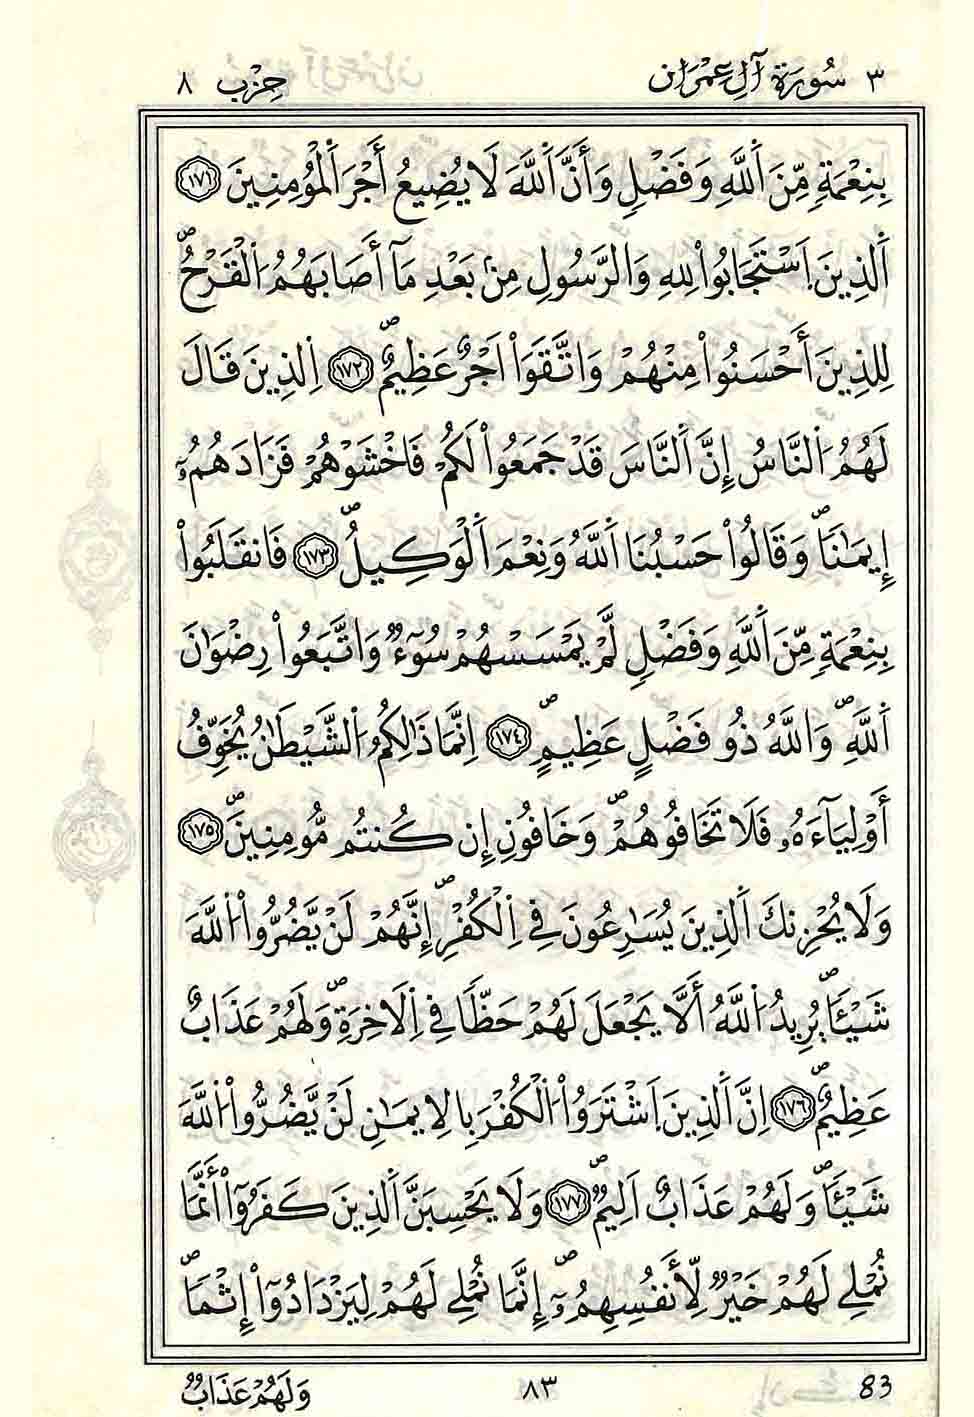 ٣ سُورَةُ آلِ عِمْرَان حِزْب ٨
بِنِعْمَةٖ مِّنَ اَ۬للَّهِ وَفَضْلٖ وَأَنَّ اَ۬للَّهَ لَا يُضِيعُ أَجْرَ اَ۬لْمُومِنِينَ ١٧١
اَ۬لذِينَ اَ۪سْتَجَابُواْ لِلهِ وَالرَّسُولِ مِنۢ بَعْدِ مَآ أَصَابَهُمُ اُ۬لْقَرْحُۖ
لِلذِينَ أَحْسَنُواْ مِنْهُمْ وَاتَّقَوَاْ اَجْرٌ عَظِيمٌۖ ١٧٢ اِ۬لذِينَ قَالَ
لَهُمُ اُ۬لنَّاسُ إِنَّ اَ۬لنَّاسَ قَدْ جَمَعُواْ لَكُمْ فَاخْشَوْهُمْ فَزَادَهُمُۥٓ
إِيمَٰناٗۖ وَقَالُواْ حَسْبُنَا اَ۬للَّهُ وَنِعْمَ اَ۬لْوَكِيلُۖ ١٧٣ فَانقَلَبُواْ
بِنِعْمَةٖ مِّنَ اَ۬للَّهِ وَفَضْلٖ لَّمْ يَمْسَسْهُمْ سُوٓءٞ وَاتَّبَعُواْ رِضْوَٰنَ
اَ۬للَّهِۖ وَاللَّهُ ذُو فَضْلٍ عَظِيمٍۖ ١٧٤ اِنَّمَا ذَٰلِكُمُ اُ۬لشَّيْطَٰنُ يُخَوِّفُ
أَوْلِيَآءَهُۥ فَلَا تَخَافُوهُمْۖ وَخَافُونِ إِن كُنتُم مُّومِنِينَۖ ١٧٥
وَلَا يُحْزِنكَ اَ۬لذِينَ يُسَٰرِعُونَ فِے اِ۬لْكُفْرِۖ إِنَّهُمْ لَنْ يَّضُرُّواْ اُ۬للَّهَ
شَيْـٔاٗۖ يُرِيدُ اُ۬للَّهُ أَلَّا يَجْعَلَ لَهُمْ حَظّاٗ فِے اِ۬لَاخِرَةِۖ وَلَهُمْ عَذَابٌ
عَظِيمٌۖ ١٧٦ اِنَّ اَ۬لذِينَ اَ۪شْتَرَوُاْ اُ۬لْكُفْرَ بِالِايمَٰنِ لَنْ يَّضُرُّواْ اُ۬للَّهَ
شَيْـٔاٗۖ وَلَهُمْ عَذَابٌ اَلِيمٞۖ ١٧٧ وَلَا يَحْسِبَنَّ اَ۬لذِينَ كَفَرُوٓاْ أَنَّمَا
نُمْلِے لَهُمْ خَيْرٞ لِّأَنفُسِهِمُۥٓۖ إِنَّمَا نُمْلِے لَهُمْ لِيَزْدَادُوٓاْ إِثْماٗۖ
وَلَهُمْ عَذَابٞ ٨٣ 83